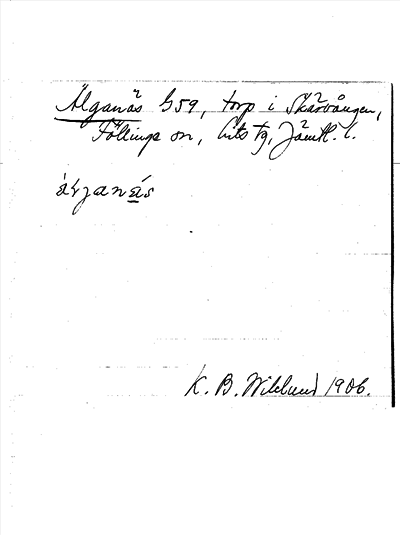 Älganäs G59, torp i Skärvången,
Föllinge sn, Lits tg, Jämtl. l.
K. B. Wiklund 1906.